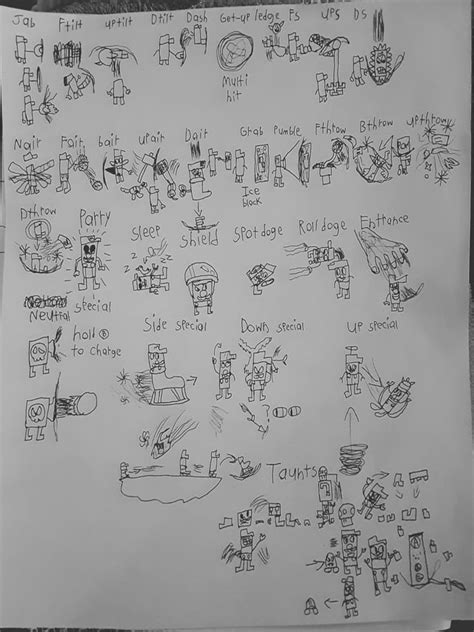 Jab Ftilt uptilt Dtilt Dash Get-up ledge Fs ups DS
Multi
hit
Nair Fair bair upair Dair Grab Pumble Fthrow Bthrow upthrow
Ice
block
Dthrow Parry Sleep Shield Spotdoge Rolldoge Entrance
Neutral special
hold B
to charge
Side special Down special up special
zz
z
?
Taunts